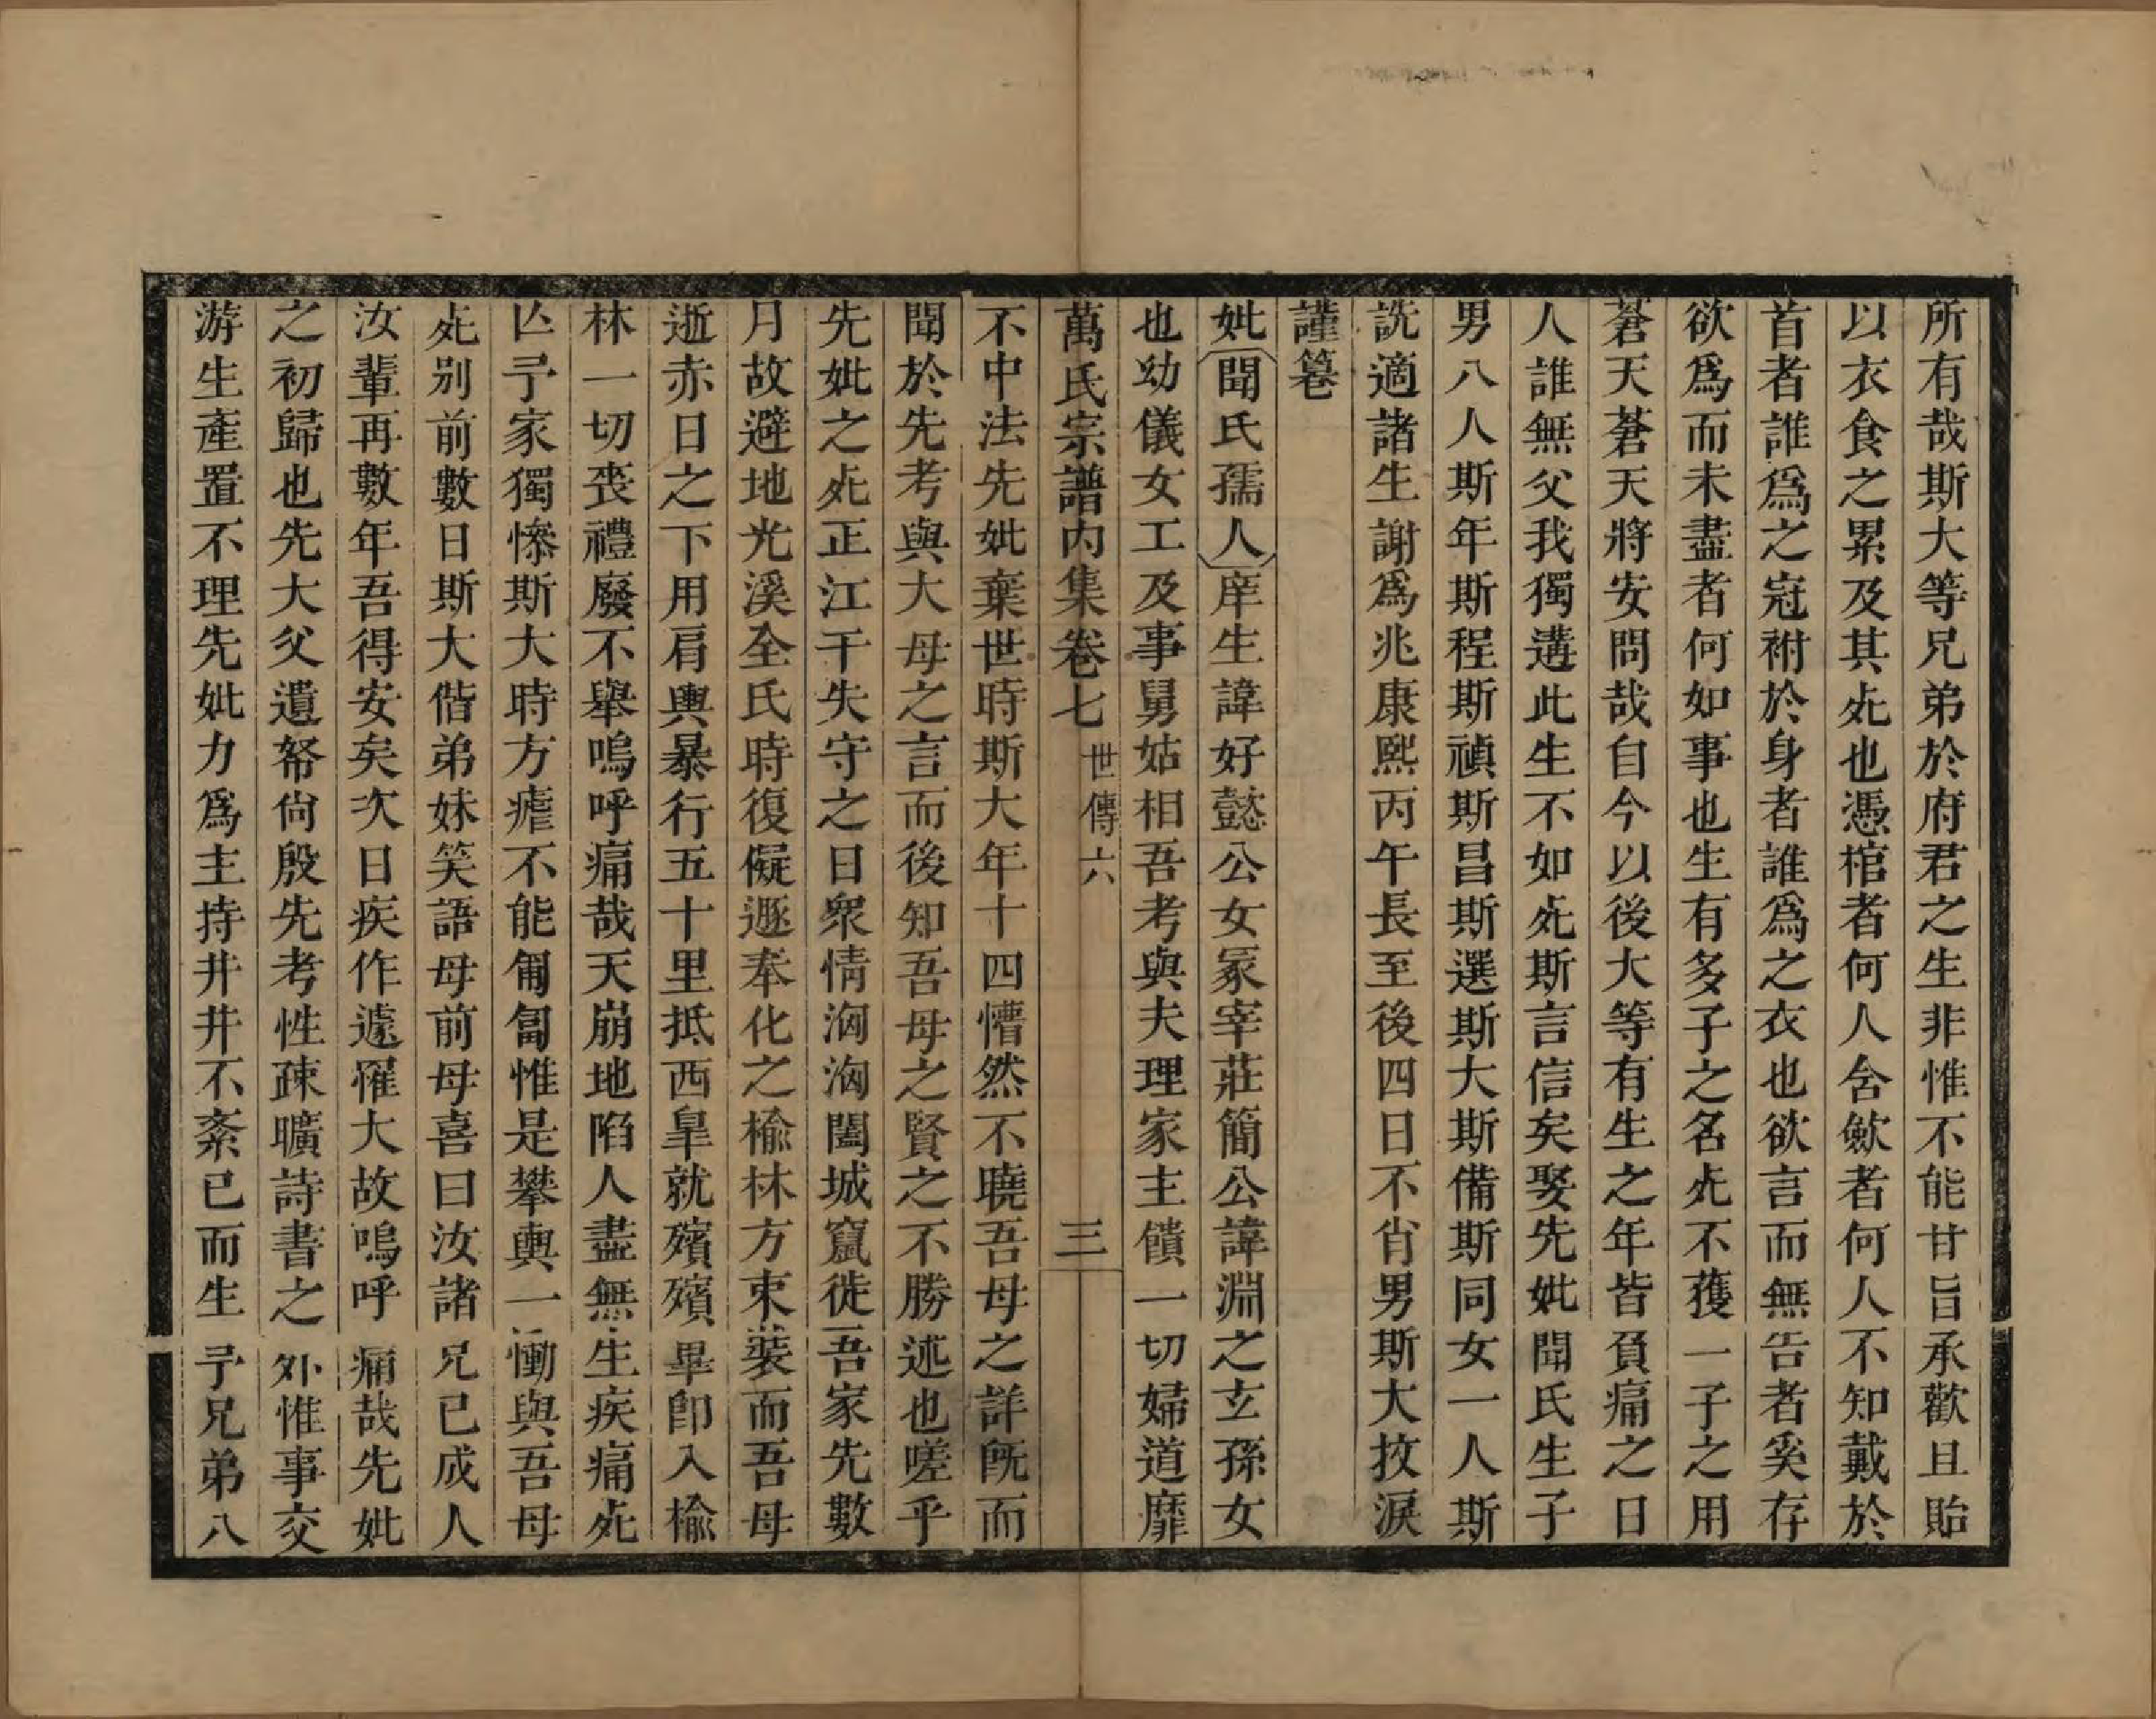 所有哉斯大等兄弟於府君之生非惟不能甘旨承歡且貽
以衣食之累及其死也憑棺者何人含歛者何人不知戴於
首者誰爲之冠袝於身者誰爲之衣也欲言而無告者奚存
欲爲而未盡者何如事也生有多子之名死不獲一子之用
蒼天蒼天將安問哉自今以後大等有生之年皆負痛之日
人誰無父我獨遘此生不如死斯言信矣娶先妣聞氏生子
男八人斯年斯程斯禎斯昌斯選斯大斯備斯同女一人斯
詵適諸生謝爲兆康熙丙午長至後四日不肖男斯大抆淚
謹篹
妣聞氏孺人庠生諱好懿公女冢宰莊簡公諱淵之玄孫女
也幼儀女工及事舅姑相吾考與夫理家主饋一切婦道靡
萬氏宗譜內集卷七 世傳六 三
不中法先妣棄世時斯大年十四懵然不曉吾母之詳旣而
聞於先考與大母之言而後知吾母之賢之不勝述也嗟乎
先妣之死正江干失守之日衆情洶洶闔城竄徙吾家先數
月故避地光溪全氏時復儗遯奉化之榆林方束裝而吾母
逝赤日之下用肩輿暴行五十里抵西臯就殯殯畢卽入榆
林一切喪禮廢不舉嗚呼痛哉天崩地陷人盡無生疾痛死
亾予家獨慘斯大時方瘧不能匍匐惟是攀輿一慟與吾母
死别前數日斯大偕弟妹笑語母前母喜曰汝諸兄已成人
汝輩再數年吾得安矣次日疾作遽罹大故嗚呼痛哉先妣
之初歸也先大父遺帑尙殷先考性疎曠詩書之外惟事交
游生產置不理先妣力爲主持井井不紊已而生予兄弟八